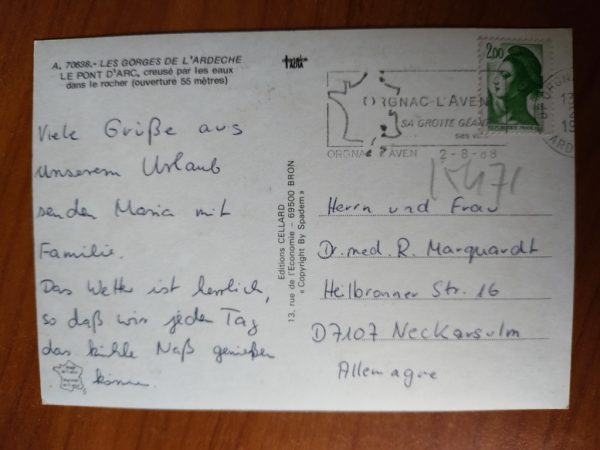 A. 70638.- LES GORGES DE L'ARDECHE
LE PONT D'ARC, creusé par les eaux
dans le rocher (ouverture 55 mètres)
Viele Grüße aus
unserem Urlaub
senden Maria mit
Familie.
Das Wetter ist herrlich,
so daß wir jeden Tag
das kühle Naß genießen
können.
Editions CELLARD
13, rue de l'Economie - 69500 BRON
« Copyright By Spadem »
2,00
REPUBLIQUE FRANCAISE
ORGNAC-L'AVEN
SA GROTTE GÉAN
ses
ORGNAC AVEN 2-8-88
ORGNA
13
19
ARD
Herrn und Frau
Dr. med. R. Marquardt
Heilbronner Str. 16
D7107 Neckarsulm
Allemagne